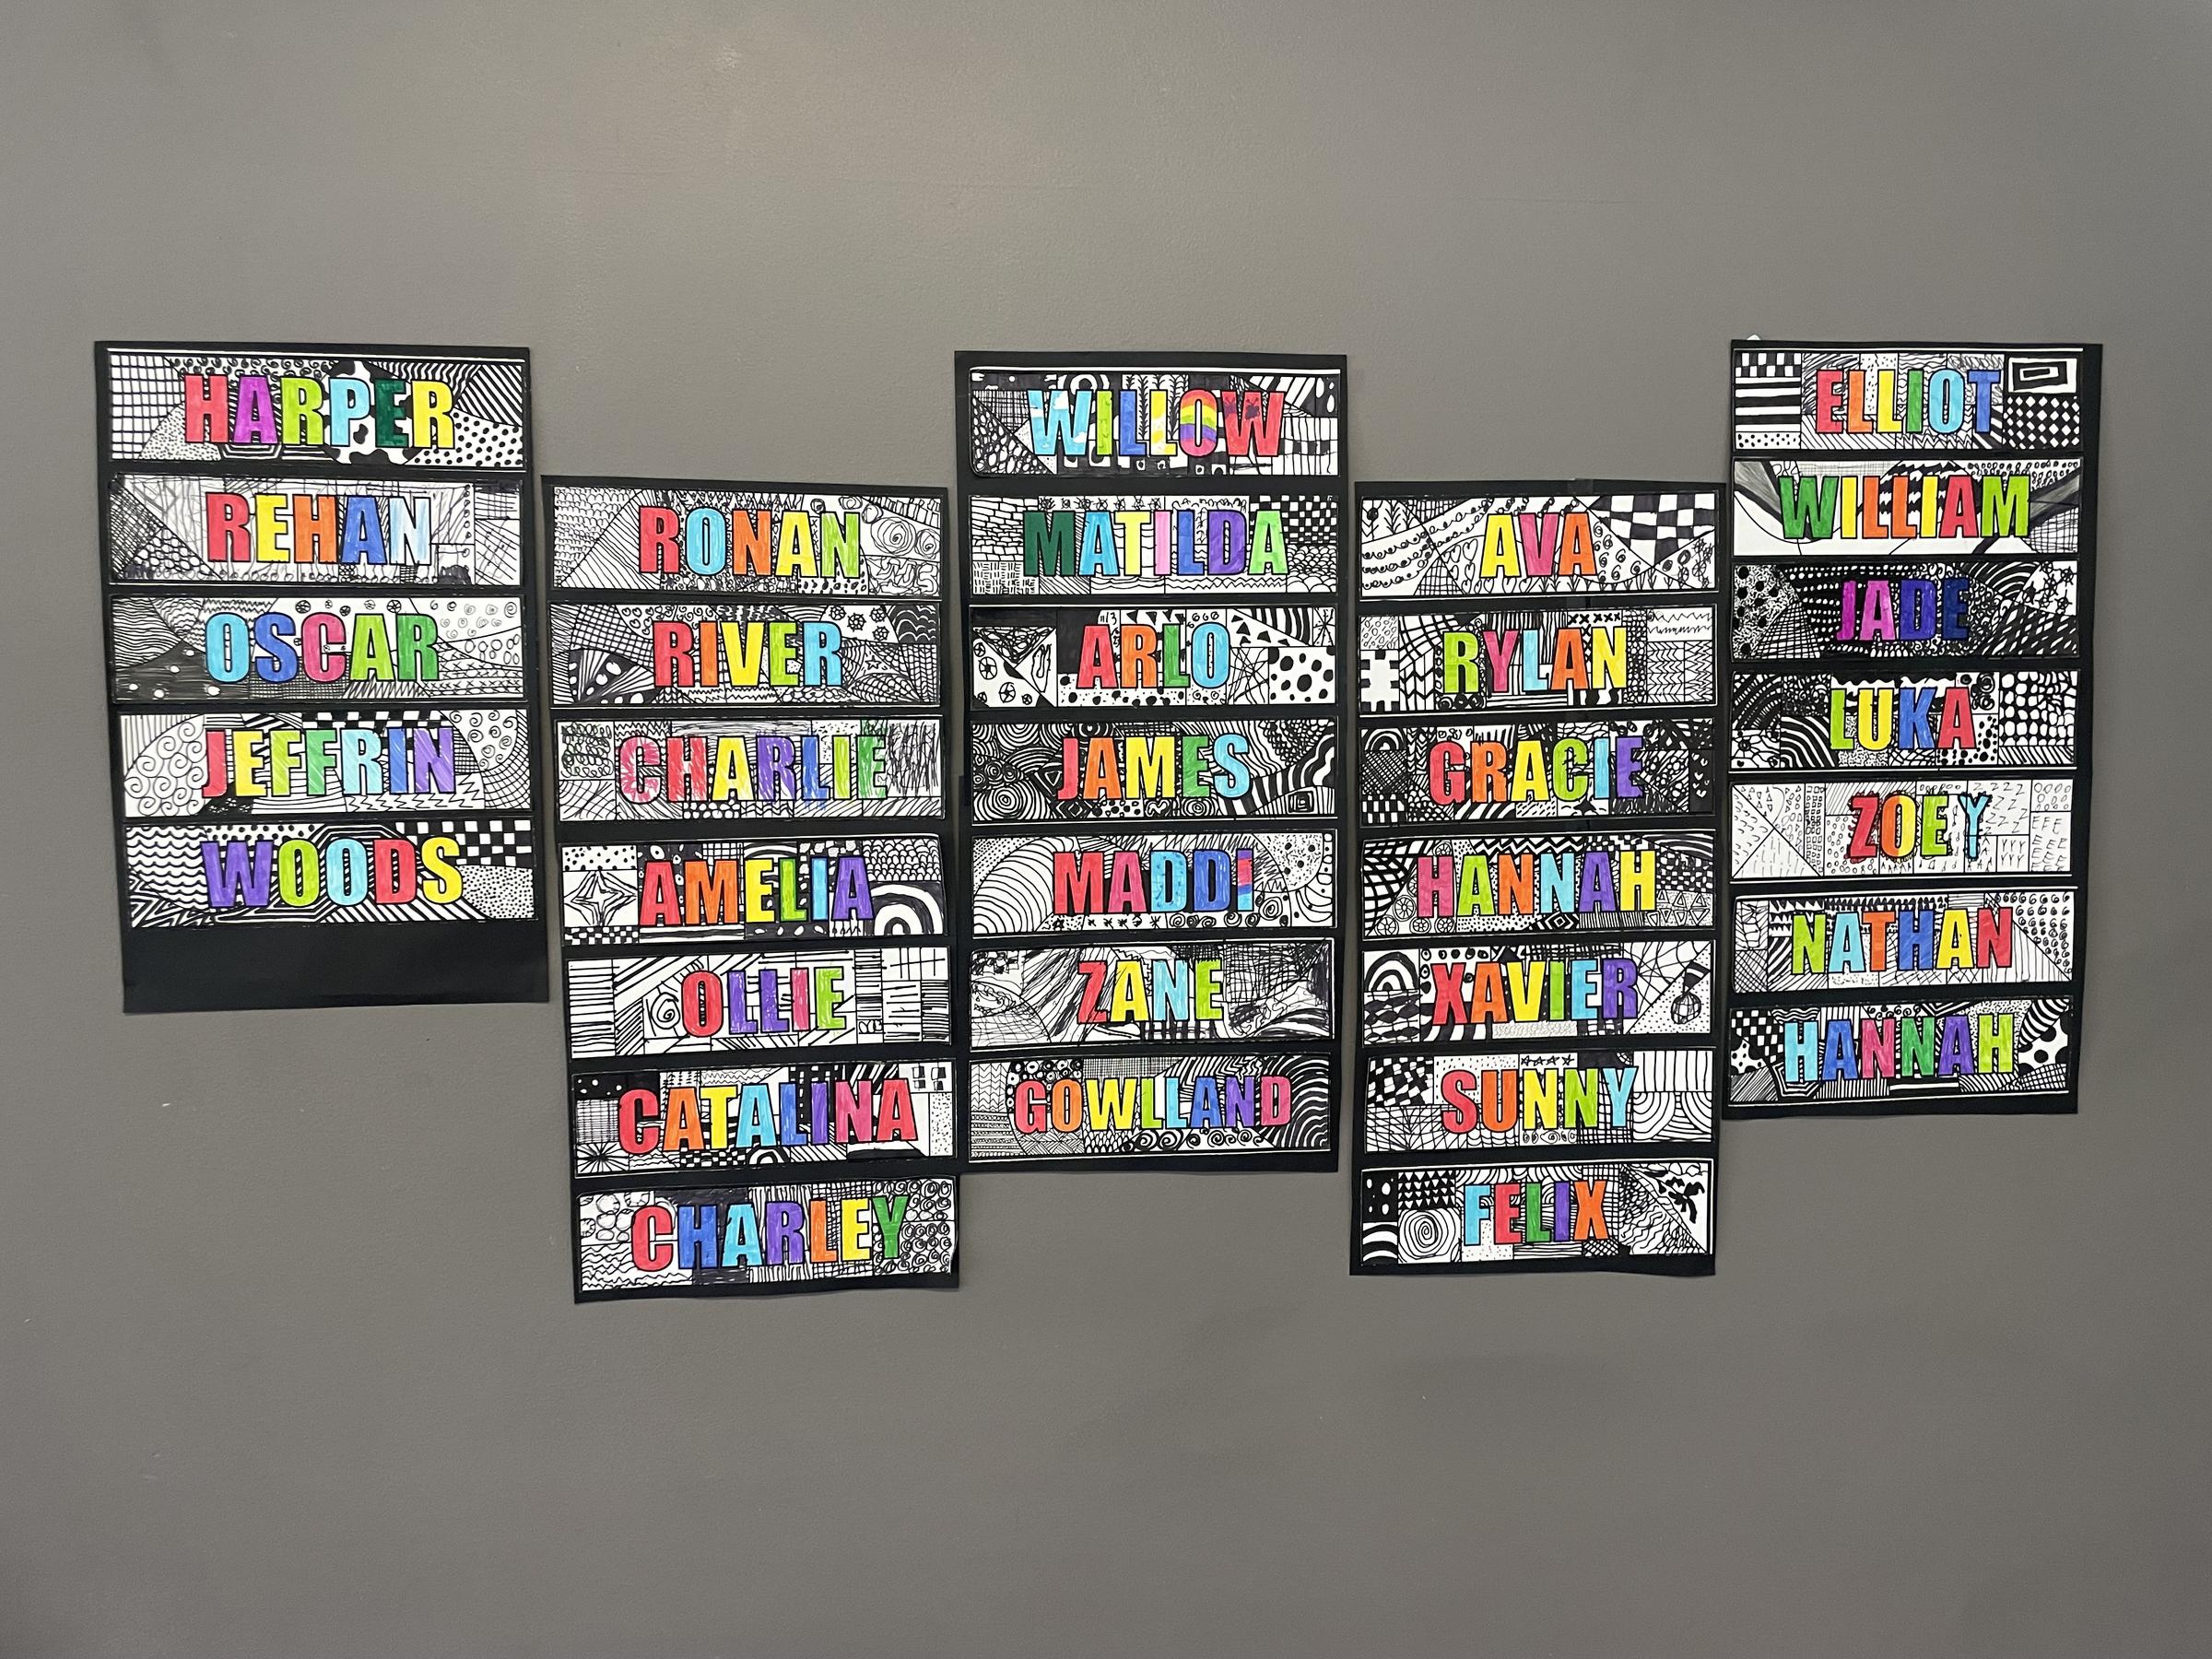 HARPER
REHAN
OSCAR
JEFFRIN
WOODS
RONAN
RIVER
CHARLIE
AMELIA
OLLIE
CATALINA
CHARLEY
WILLOW
MATILDA
ARLO
JAMES
MADDI
ZANE
GOWLLAND
AVA
RYLAN
GRACIE
HANNAH
XAVIER
SUNNY
FELIX
ELLIOT
WILLIAM
JADE
LUKA
ZOEY
NATHAN
HANNAH